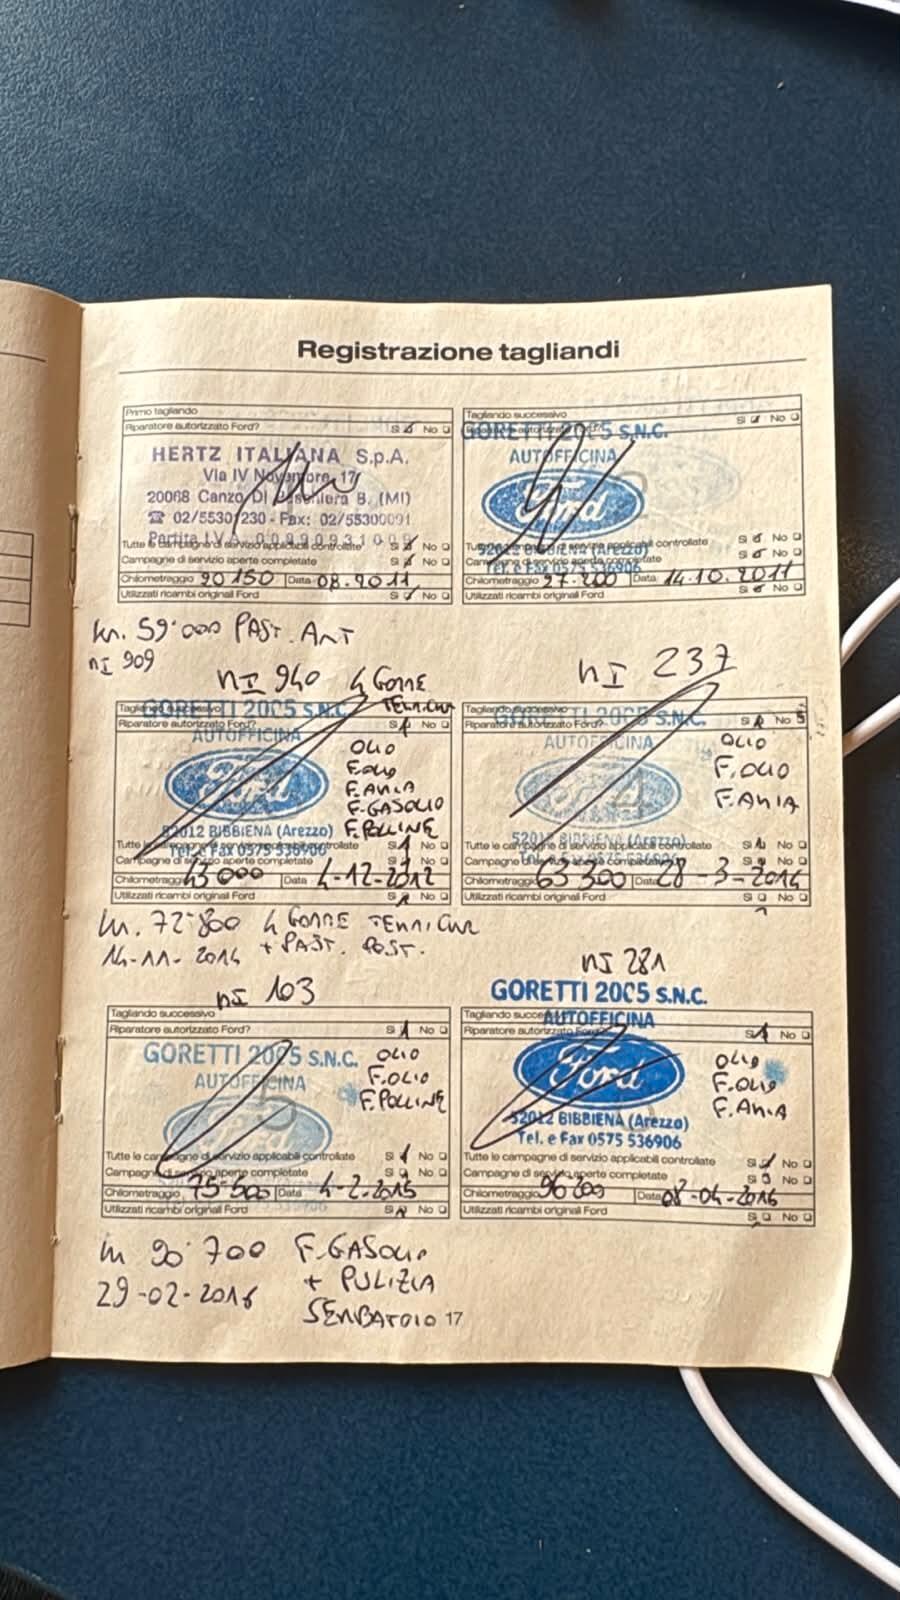 Registrazione tagliandi
Primo tagliando
Riparatore autorizzato Ford? Sì No
HERTZ ITALIANA S.p.A.
Via IV Novembre, 17
20068 Canzo DI Peschiera B. (MI)
☎ 02/55301230 - Fax: 02/55300091
Partita IVA
Tutte le campagne di servizio applicabili controllate Sì No
Campagne di servizio aperte completate Sì No
Chilometraggio 20150 Data 08.2011
Utilizzati ricambi originali Ford Sì No
Tagliando successivo
Sì No
GORETTI 2005 S.N.C.
AUTOFFICINA
Ford
52012 BIBBIENA (Arezzo)
Tel. e Fax 0575 536906
controllate Sì No
completate Sì No
Chilometraggio 27.200 Data 14.10.2011
Utilizzati ricambi originali Ford Sì No
km. 59'000 PAST. ANT
nI 909
nI 940 4 GOMME
TERMICHE
Tagliando successivo
GORETTI 2005 S.N.C.
Riparatore autorizzato Ford? Sì No
AUTOFFICINA
Ford
OLIO
F.OLIO
F.ARIA
F.GASOLIO
F.POLLINE
52012 BIBBIENA (Arezzo)
Tel. e Fax 0575 536906
Tutte le campagne di servizio applicabili controllate Sì No
Campagne di servizio aperte completate Sì No
Chilometraggio 43000 Data 4-12-2012
Utilizzati ricambi originali Ford Sì No
nI 237
Tagliando successivo
GORETTI 2005 S.N.C.
Riparatore autorizzato Ford? Sì No
AUTOFFICINA
OLIO
F.OLIO
F.ARIA
52012 BIBBIENA (Arezzo)
Tutte le campagne di servizio applicabili controllate Sì No
Campagne di servizio aperte completate Sì No
Chilometraggio 63300 Data 28-3-2014
Utilizzati ricambi originali Ford Sì No
km. 72'800 4 GOMME TERMICHE
14-11-2014 + PAST. POST.
nI 103
Tagliando successivo
Riparatore autorizzato Ford? Sì No
GORETTI 2005 S.N.C.
AUTOFFICINA
Ford
OLIO
F.OLIO
F.POLLINE
Tutte le campagne di servizio applicabili controllate Sì No
Campagne di servizio aperte completate Sì No
Chilometraggio 75-500 Data 4-2-2015
Utilizzati ricambi originali Ford Sì No
nI 281
GORETTI 2005 S.N.C.
Tagliando successivo
AUTOFFICINA
Riparatore autorizzato Ford? Sì No
Ford
OLIO
F.OLIO
F.ARIA
52012 BIBBIENA (Arezzo)
Tel. e Fax 0575 536906
Tutte le campagne di servizio applicabili controllate Sì No
Campagne di servizio aperte completate Sì No
Chilometraggio 96200 Data 08-04-2016
Utilizzati ricambi originali Ford Sì No
km 90'700 F.GASOLIO
29-02-2016 + PULIZIA
SERBATOIO 17